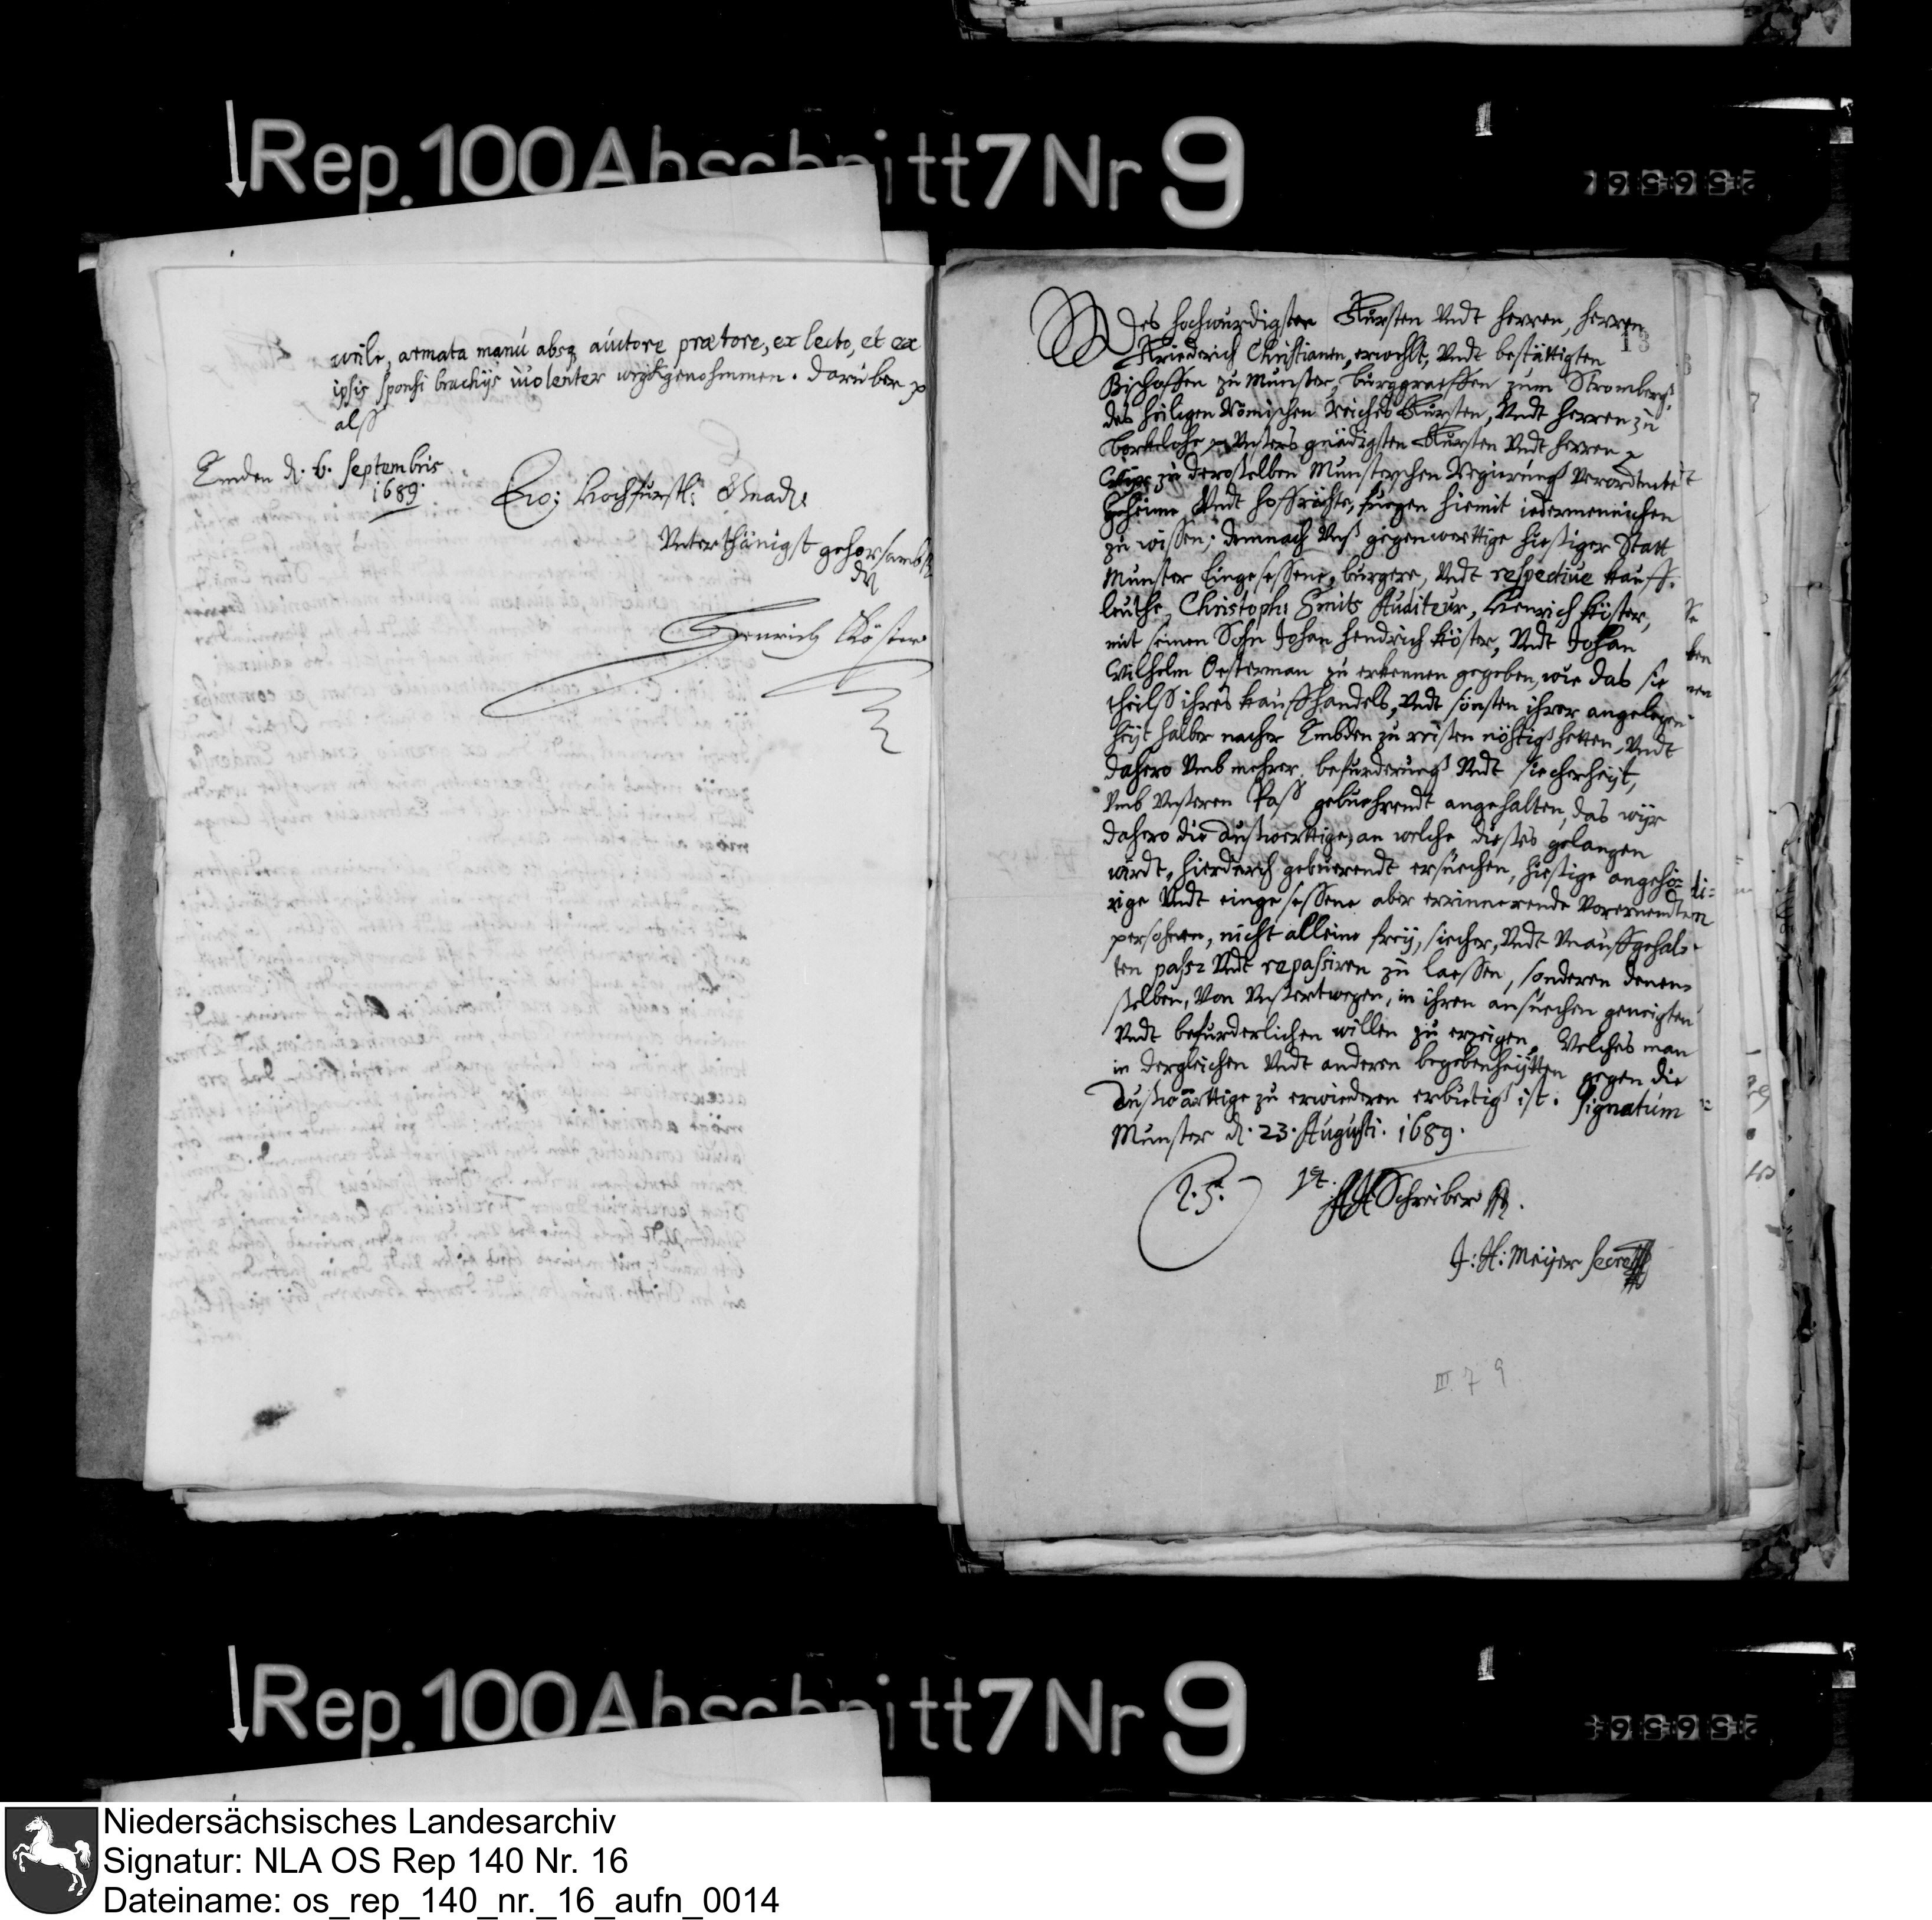 Rep. 100 Abschnitt 7 Nr 9
wile, armata manú absq aútore prætore, ex lecto, et ex
ipsis sponsi brachijs violenter weckgenohmmen. darüber p
alß
Emden d. 6. Septembris
1689.
Ew: Hochfürstl: Gnade
Unterthänigst gehorsambst
Henrich Köster
13
Des hochwurdigsten Fursten Undt herren, herren
Friederich Christianen, erwohlt, Undt bestättigten
Bischoffen zu Munster, burggraeffen zum Stromberg,
des heiligen Römischen reiches Fursten, Undt herren zú
borkelohe p Unsers gnädigsten Fursten Undt herren
Wir zú deroselben Munsterschen Regierúng Verordtnete
geheime Undt hoffräthe, fuegen hiemit iedermennichen
zú wissen; demnach Unß gegenwerttige hiesiger Statt
Munster Eingesessene, burgere, Undt respective kauff-
leúthe, Christoph Smits Auditeur, Henrich Köster,
mit seinen Sohn Johan hendrich köster, Undt Johan
Wilhelm Oesterman zú erkennen gegeben, wie das sie
theilß ihres kauffhandels, Undt sonsten ihrer angelegen-
heyt halber nacher Embden zú reisen nöhtig hetten, Undt
dahero Umb mehrer befurderung Undt siecherheijt,
Umb Unseren Paß gebuehrendt angehalten, das wijr
dahero die außwerttige, an welche dießes gelangen
wirdt, hierdurch gebuerendt ersuechen, hiesige angehö-
rige Undt eingesessene aber errinnerende Vorernendten
persohnen, nicht alleine freij, siecher, Undt Unauffgehal-
ten pass- Undt repassiren zú laessen, sonderen denen-
selben, Von Unsertwegen, in ihren ansuechen geneigten
Undt befurderlichen willen zú erzeigen, Welches man
in dergleichen Undt anderen begebenheijtten gegen die
Außwärttige zú erwiederen erbietig ist. Signatúm
Munster d. 23. Augusti. 1689.
L. S.
Schreiber
J: H: Meijer Secret
III 7 9
Rep. 100 Abschnitt 7 Nr 9
Niedersächsisches Landesarchiv
Signatur: NLA OS Rep 140 Nr. 16
Dateiname: os_rep_140_nr._16_aufn_0014